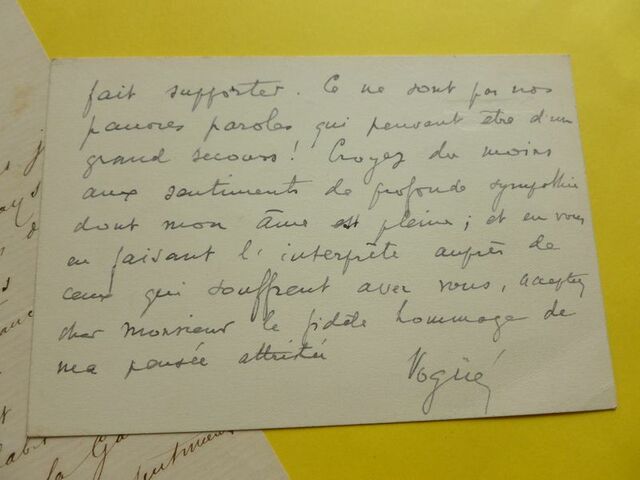 fait supporter. Ce ne sont pas nos
pauvres paroles qui peuvent être d'un
grand secours ! Croyez du moins
aux sentiments de profonde sympathie
dont mon âme est pleine ; et en vous
en faisant l'interprête auprès de
ceux qui souffrent avec vous, acceptez
cher Monsieur le fidèle hommage de
ma pensée attristée
Vogüé